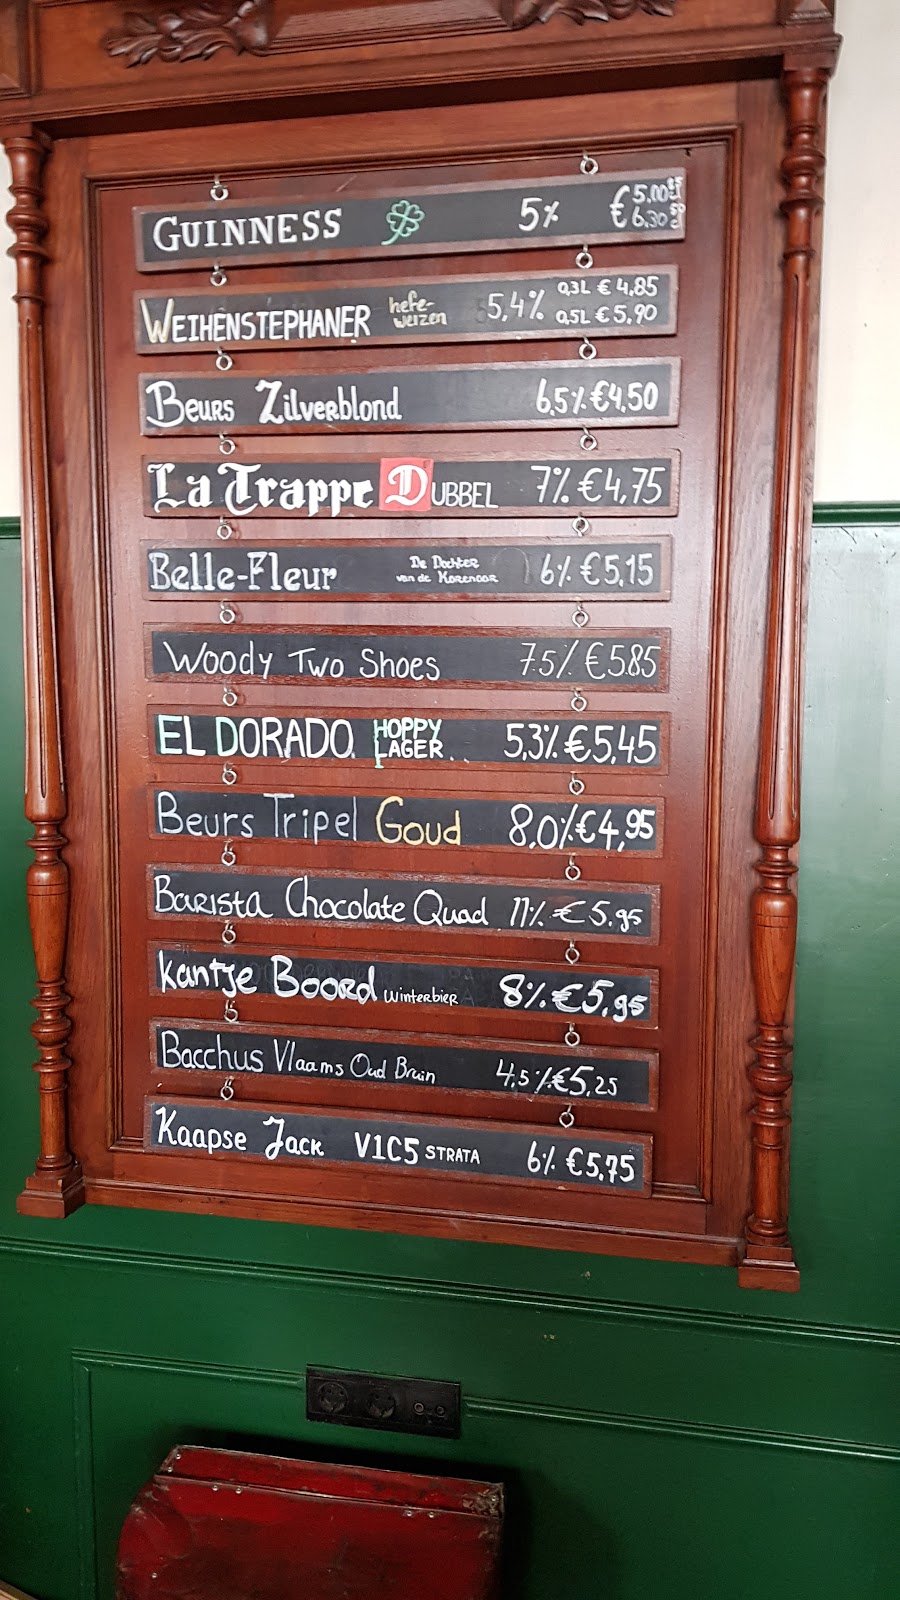 GUINNESS 5% € 5.00
6.30
WEIHENSTEPHANER hefe-weizen 5,4% 0,3L € 4,85
0,5L € 5,90
Beurs Zilverblond 6,5% €4,50
La Trappe DUBBEL 7% €4,75
Belle-Fleur De Dochter van de Korenaar 6% €5,15
Woody Two Shoes 7.5% €5.85
EL DORADO HOPPY LAGER 5,3% €5,45
Beurs Tripel Goud 8,0% €4,95
Barista Chocolate Quad 11% €5,95
Kantje Boord winterbier 8% €5,95
Bacchus Vlaams Oud Bruin 4,5% €5,25
Kaapse Jack V1C5 STRATA 6% €5,75